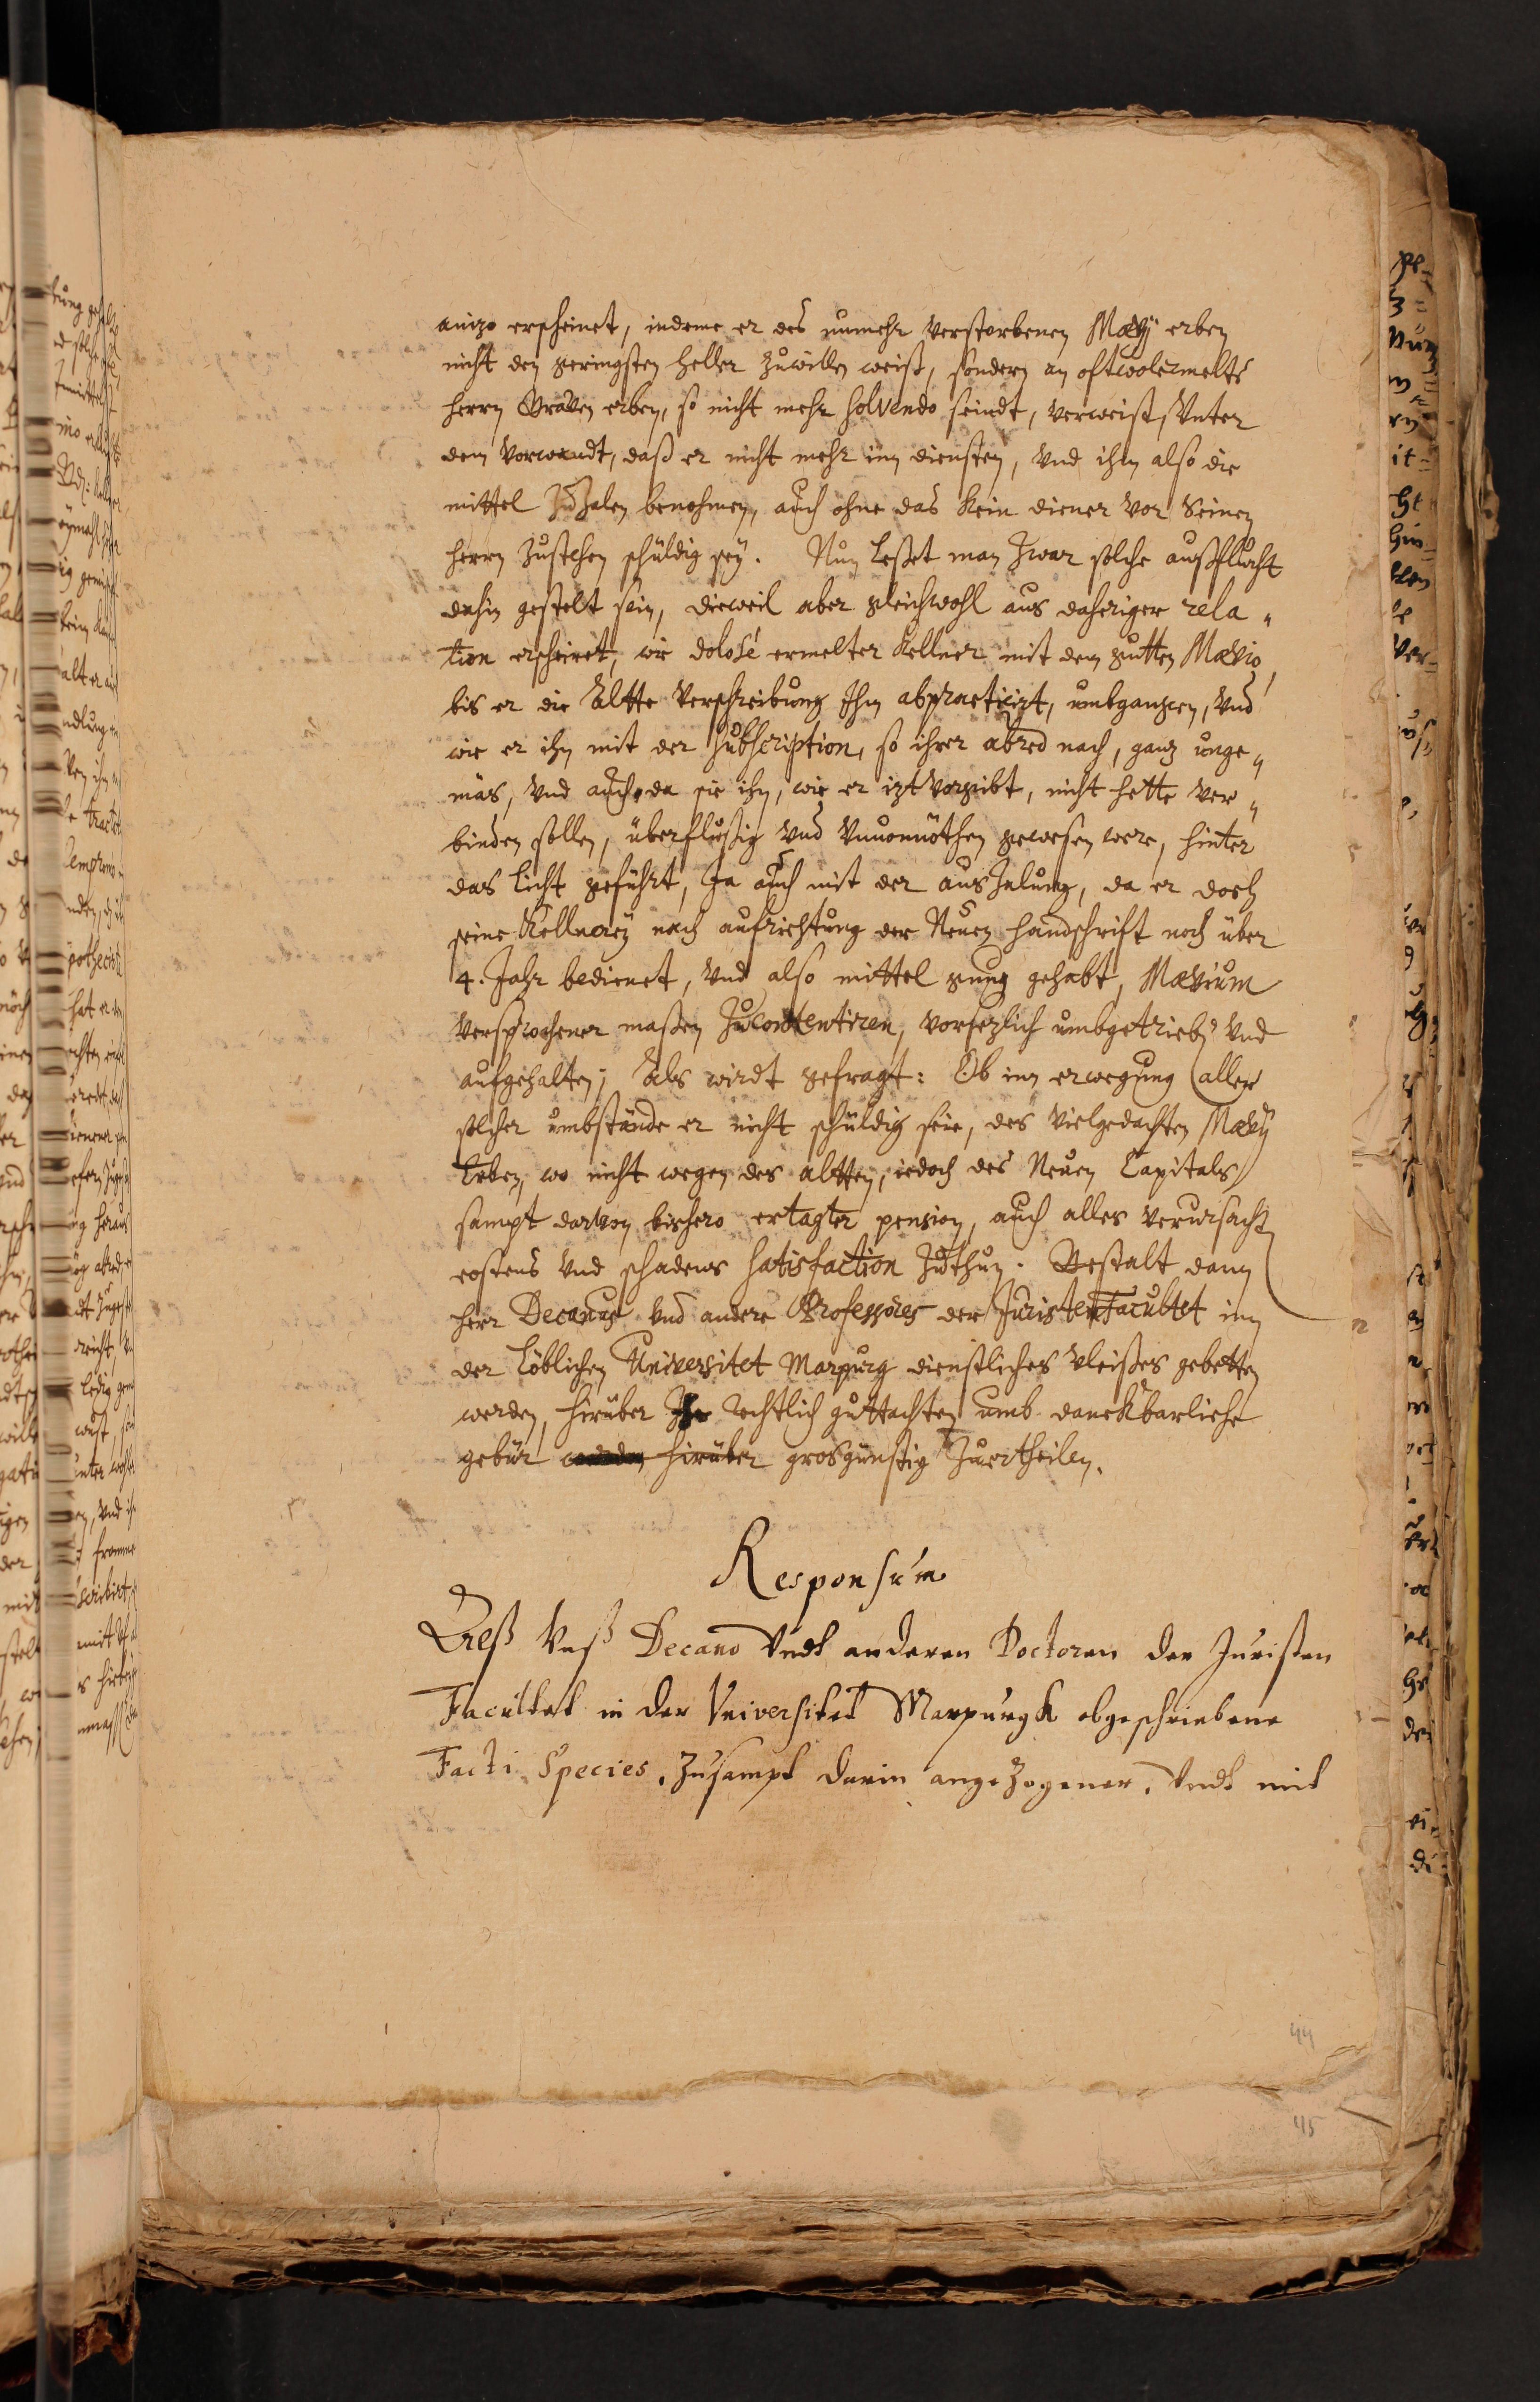 anizo erscheinet, indeme er des nunmehr verstorbenen Mævij erben
nicht den geringsten heller zuwillen weiß, sondern an oftwolermelts
herrn Graven erben, so nicht mehr solvendo seindt, verweist, Unter
dem Vorwandt, daß er nicht mehr inn diensten, Vnd ihm also die
mittel Zuzalen benohmen, auch ohne das kein diener vor Seinen
herrn Zustehen schuldig sey. Nun Leßet man Zwar solche außflucht
dahin gestelt sein, dieweil aber gleichwohl aus daheriger rela„
tion erscheinet, wie dolosé ermelter Kellner mit dem gutten Mævio,
bis er die Altte Verschreibung Ihm abpracticirt, umbgangen, Vnd
wie er ihn mit der Subscription, so ihrer abred nach, ganz unge„
mäs, Vnd auch, da sie ihn, wie er izt vorgibt, nicht hette ver„
binden sollen, überflüßig Vnd Vnuonnöthen gewesen were, hinter
das Licht geführt, Ja auch mit der auszalung, da er doch
seine Kellnerey nach aufrichtung der Neuen handschrift noch über
4. Jahr bedienet, Vnd also mittel gnug gehabt, Mævium
versprochener maßen Zucontentiren, vorsezlich umbgetrieben Vnd
aufgehalten; Als wirdt gefragt: Ob inn erwegung aller
solcher umbstände er nicht schuldig seie, des vielgedachten Mævij
Erben, wo nicht wegen des altten, iedoch des Neuen Capitals
sampt darvon bishero ertagter pension, auch alles verursacht
costens Vnd schadens Satisfaction Zuthun. Gestalt dann
herr Decanus Vnd andere Professores der Juristen Facultet inn
der Löblichen Universitet Marpurg dienstliches vleißes gebetten
werden, hirüber Ihr Rechtlich guttachten umb danckbarliche
gebür werden hirüber grosgünstig Zuertheilen.
Responsum
Alß Vnß Decano Undt anderen Doctoren der Juristen
Facultet in der Vniversitet Marpurgk obgeschriebene
Facti Species, Zusampt darin angezogener, Undt mit
44
45